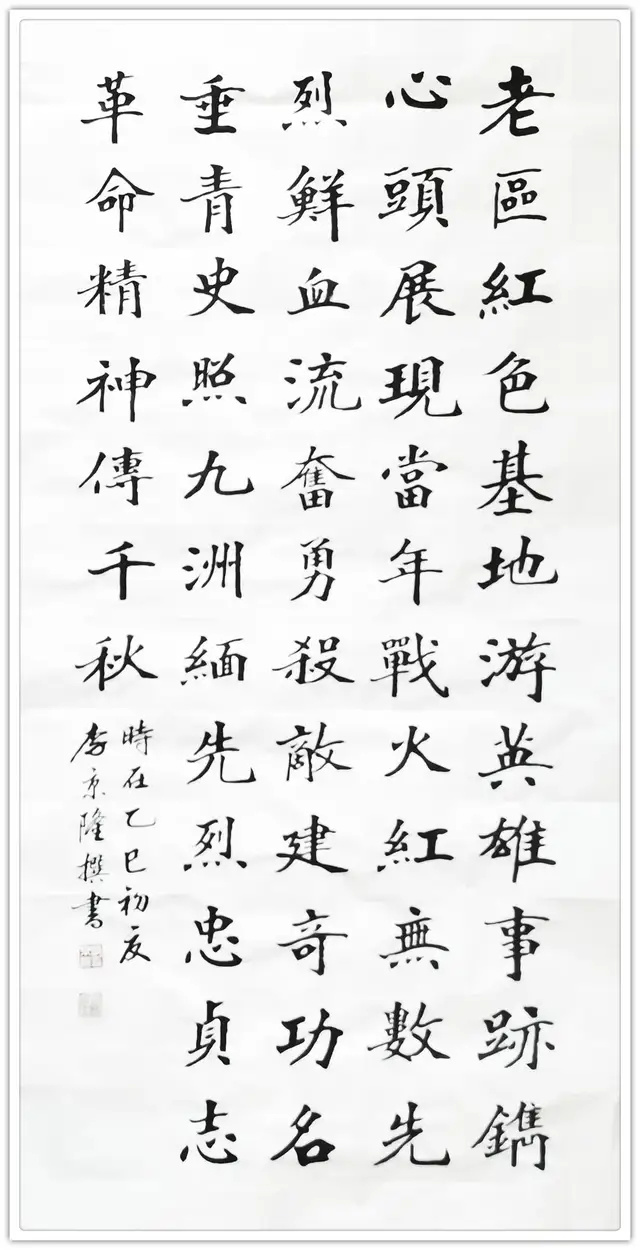 老區紅色基地游英雄事跡鐫
心頭展現當年戰火紅無數先
烈鮮血流奮勇殺敵建奇功名
垂青史照九洲緬先烈忠貞志
革命精神傳千秋
時在乙巳初夏
李京隆撰書